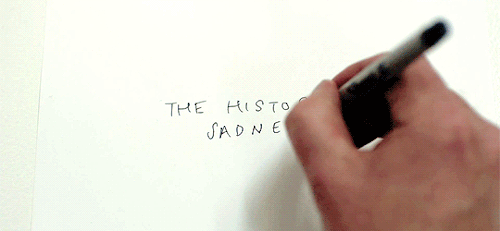 THE HISTO
SADNE